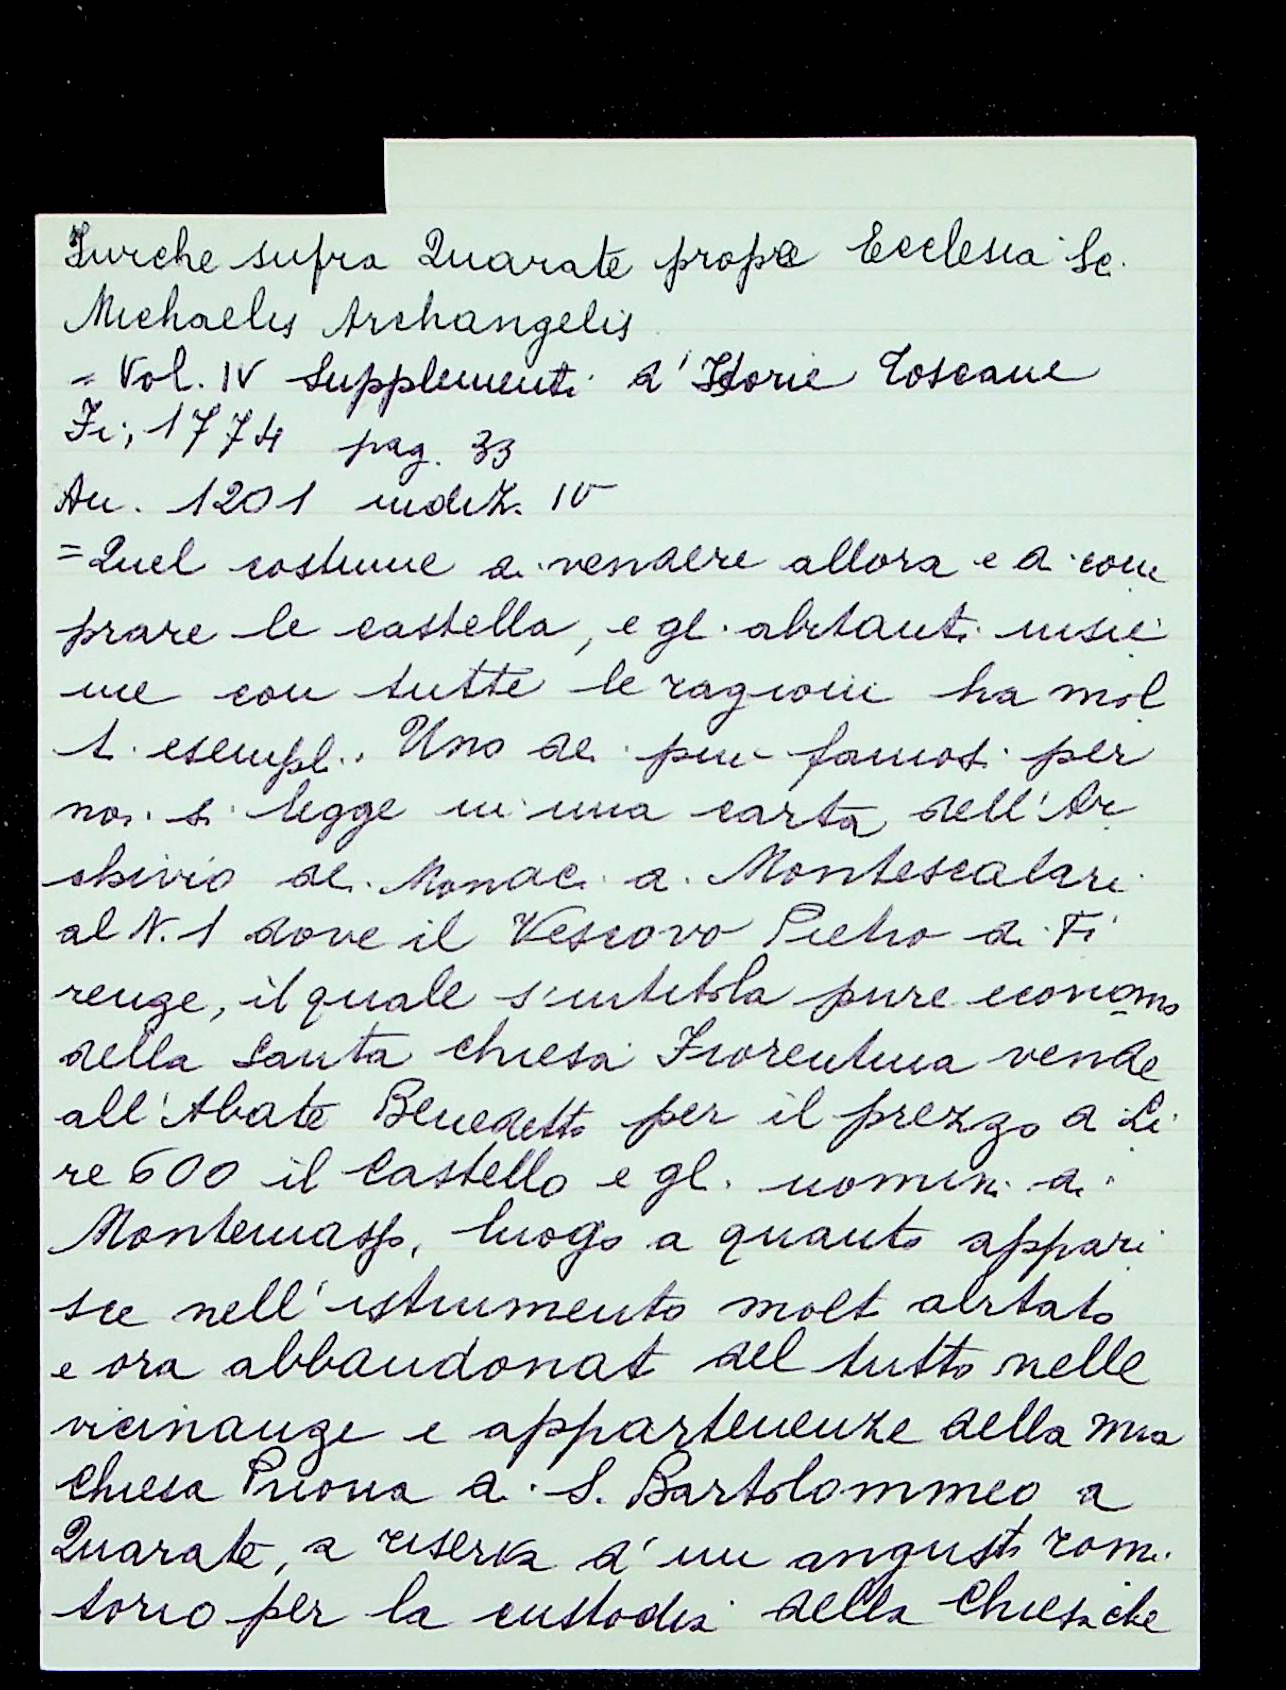 Furche supra Quarate prope Ecclesia Sc.
Michaelis Archangelis
= Vol. IV Supplementi d'Istorie Toscane
Fi, 1774 pag. 33
An. 1201 indiz. IV
= Quel costume di vendere allora e di com
prare le castella, e gli abitanti insie
me con tutte le ragioni ha mol
ti esempli. Uno dei piu famosi per
noi si legge in una carta dell'Ar
chivio dei Monaci di Montescalari
al N. 1 dove il Vescovo Pietro di Fi
renze, il quale s'intitola pure economo
della Santa Chiesa Fiorentina vende
all'Abate Benedetto per il prezzo di Li
re 600 il Castello e gli uomini di
Montemasso, luogo a quanto appari
sce nell'istrumento molt abitato
e ora abbandonat del tutto nelle
vicinanze e appartenenze della mia
Chiesa Prioria di S. Bartolommeo a
Quarate, a riserva d'un angusto romi
torio per la custodia della Chiesa che